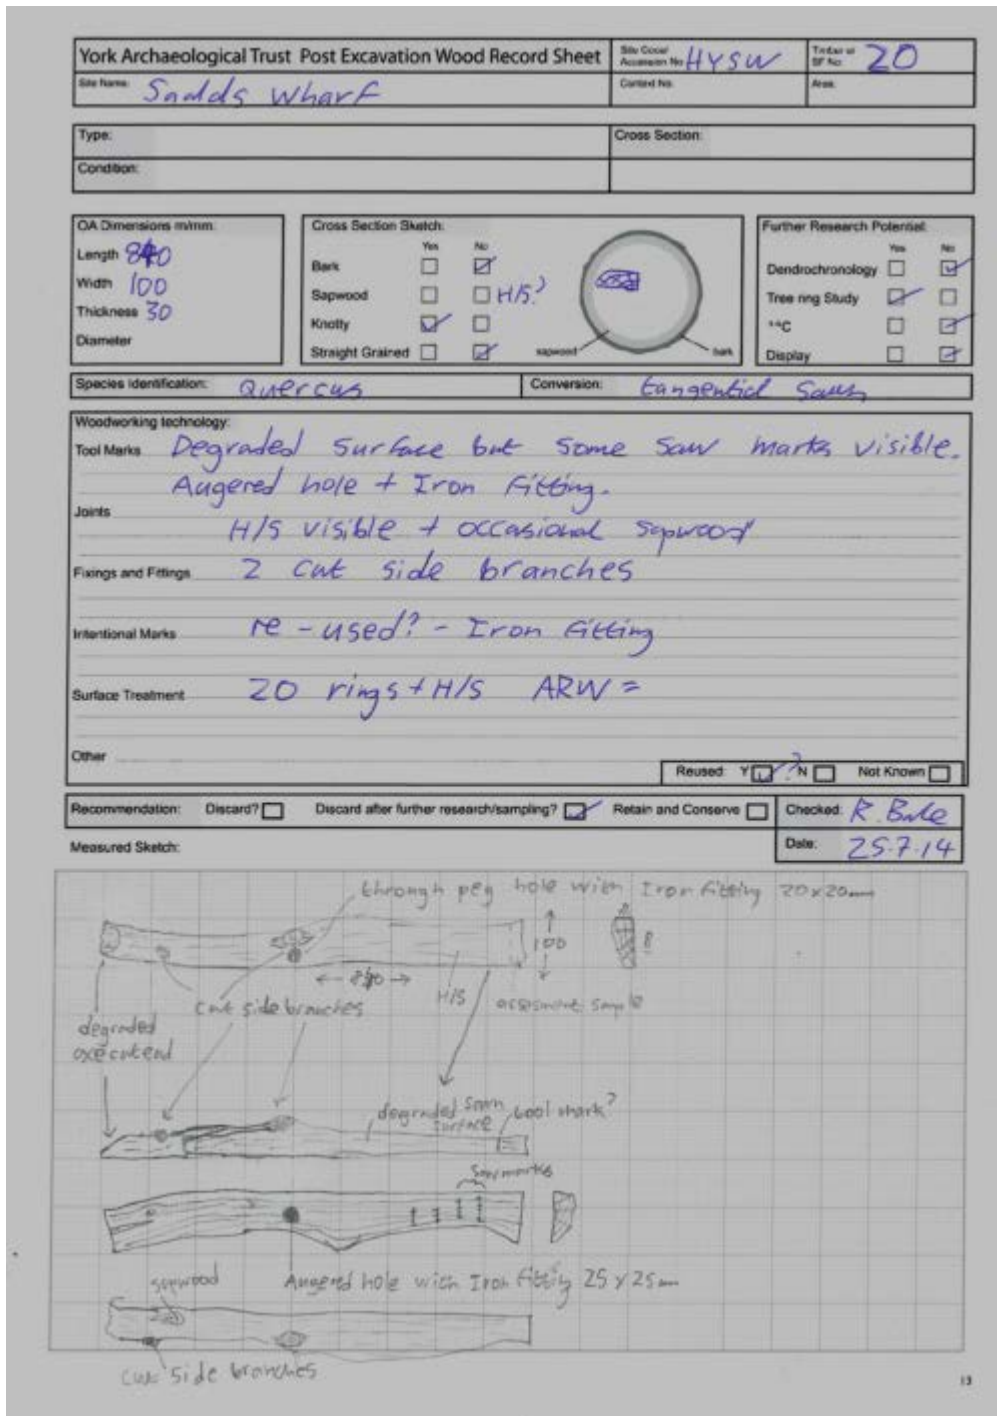 York Archaeological Trust Post Excavation Wood Record Sheet
Site Code/ Accession No HYSW
Timber or SF No: 20
Site Name: Sadds Wharf
Context No.
Area.
Type:
Cross Section:
Condition:
OA Dimensions m/mm:
Length 840
Width 100
Thickness 30
Diameter
Cross Section Sketch:
Yes No
Bark
Sapwood H/S?
Knotty
Straight Grained
sapwood bark
Further Research Potential:
Yes No
Dendrochronology
Tree ring Study
14C
Display
Species Identification: Quercus
Conversion: tangential Sawn
Woodworking technology:
Tool Marks Degraded surface but some saw marks visible.
Augered hole + Iron Fitting.
Joints
H/S visible + occasional sapwood
Fixings and Fittings 2 cut side branches
Intentional Marks re-used? - Iron Fitting
Surface Treatment 20 rings + H/S ARW =
Other
Reused: Y ? N Not Known
Recommendation: Discard? Discard after further research/sampling? Retain and Conserve
Checked: R. Bale
Measured Sketch:
Date: 25.7.14
through peg hole with Iron Fitting 20x20mm
100
← 840 →
cut side branches
H/S
assesment sample
degraded
axe cut end
degraded sawn surface
tool mark?
Saw marks
sapwood
Augered hole with Iron Fitting 25 x 25mm
cut side branches
13